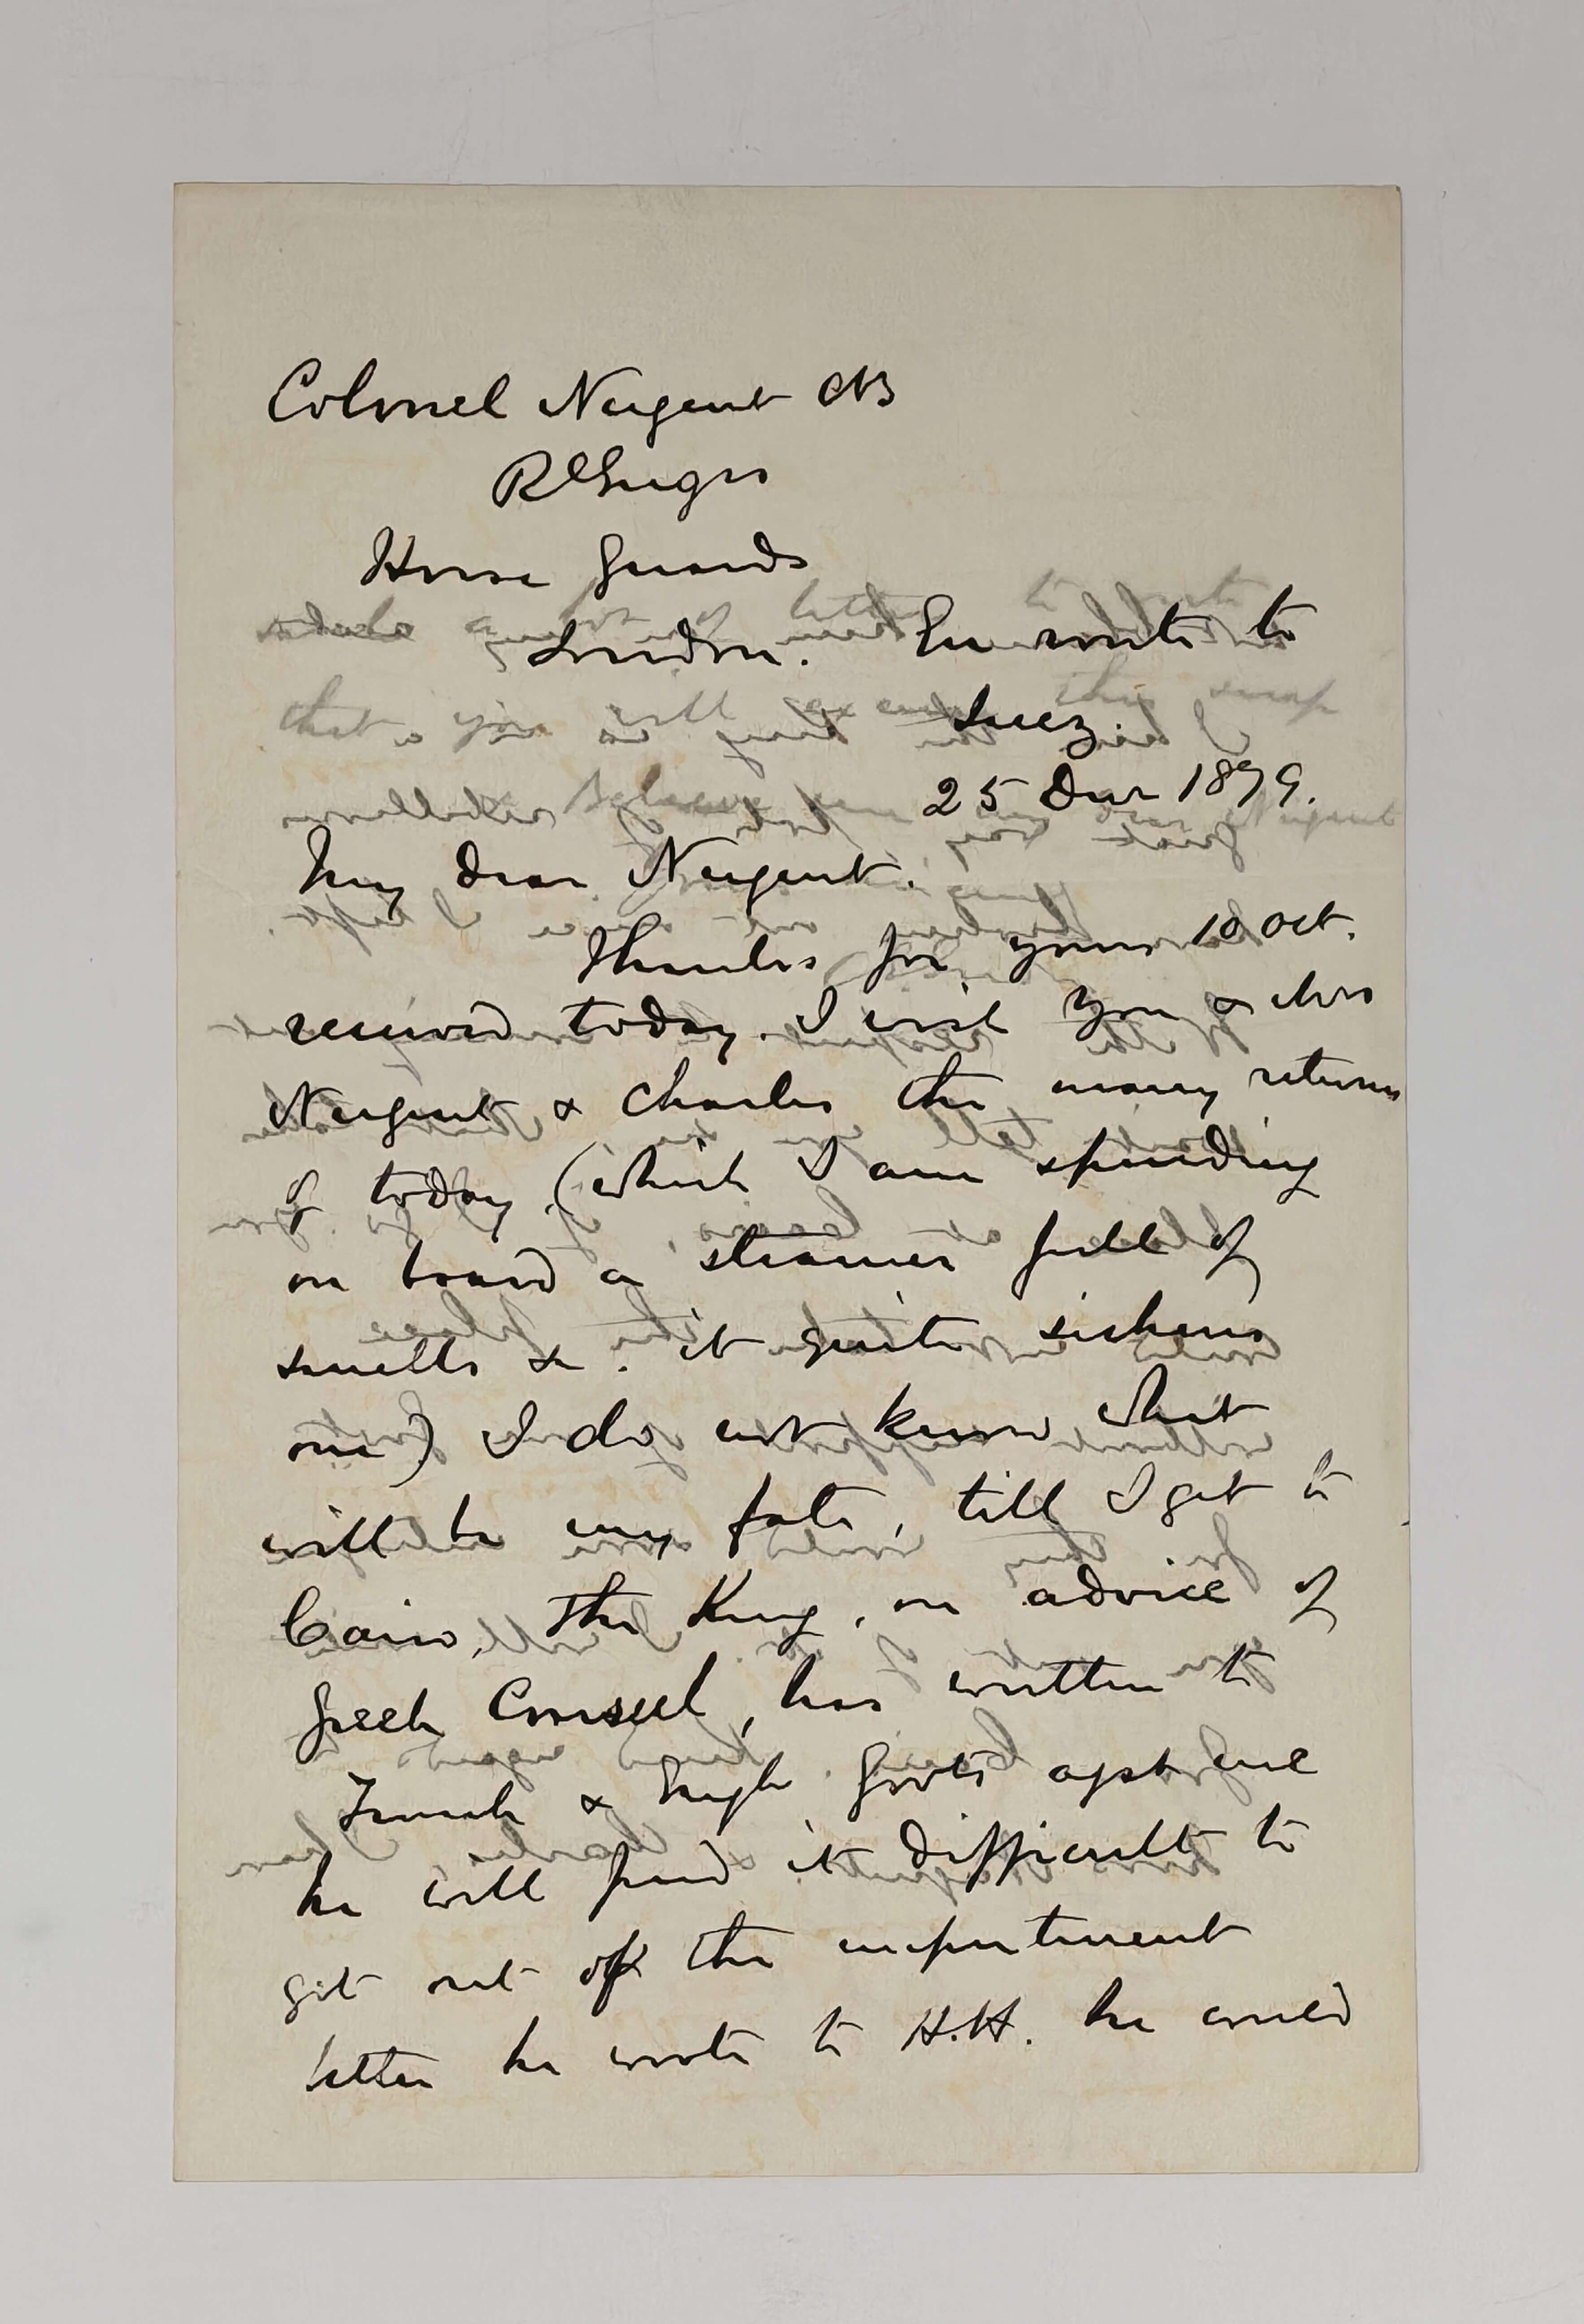 Colonel Nugent CB
R Engrs
Horse Guards
London. En route to
Suez.
25 Decr 1879.
My dear Nugent.
Thanks for yours 10 Oct.
received today. I wish you & Mrs
Nugent & Charles the many returns
of today (which I am spending
on board a steamer full of
smells &. it quite sickens
one) I do not know what
will be my fate, till I get to
Cairo, The King, on advice of
Greek Consul, has written to
French & Engh Govts agst me
he will find it difficult to
get out of the impertinent
letter he wrote to H.H. he could